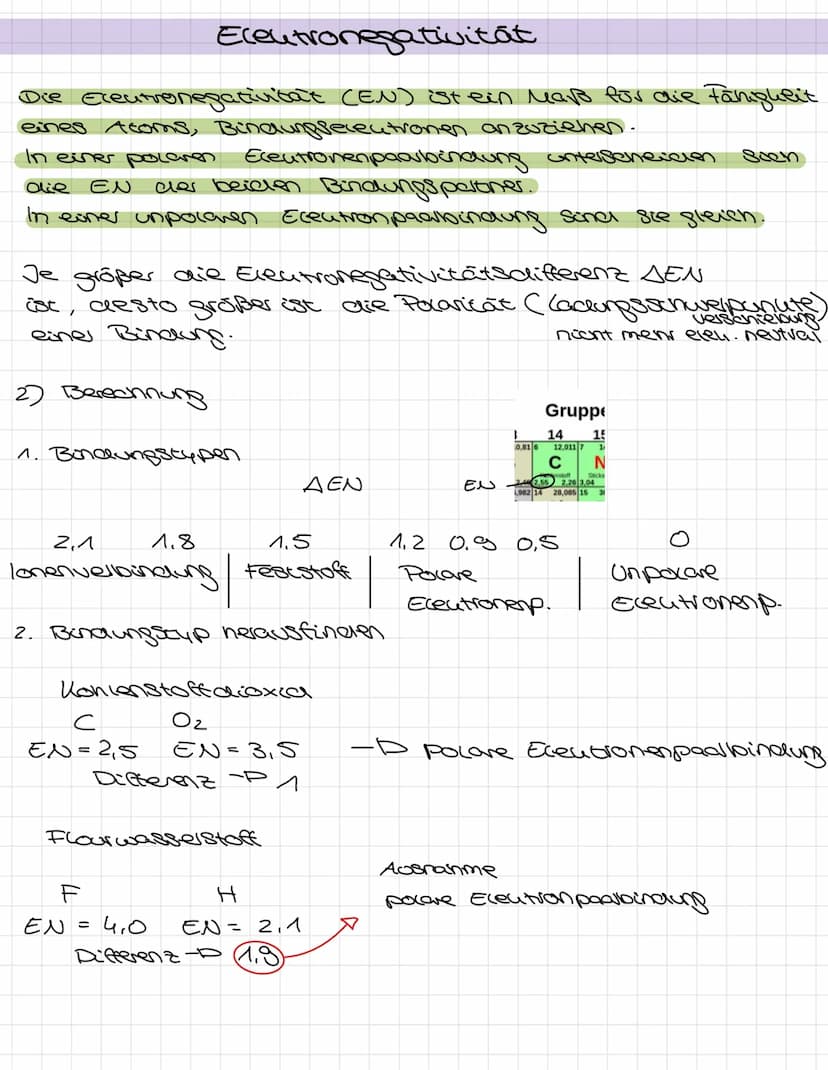 Electronegativität
Die Electronegativität (EN) ist ein Maß für die Fähigkeit
eines Atoms, Bindungselectronen anzuziehen.
In einer polaren Electronenpaarbindung unterscheiden sich
die EN der beiden Bindungspartner.
In einer unpolaren Electronpaarbindung sind sie gleich.
Je größer die Electronegativitätsdifferenz ΔEN
ist, desto größer ist die Polarität (Ladungsschwerpunkte)
verschiebung
einer Bindung.
nicht mehr elek. neutral
2) Berechnung
Gruppe
14 15
0,81 6 12,011 7 1
C N
Stick
2,55 2,26 3,04
,982 14 28,085 15 3
1. Bindungstypen
ΔEN EN
2,1 1,8 1,5 1,2 0,9 0,5 0
Ionenverbindung | Feststoff | Polare | Unpolare
Electronenp. Electronenp.
2. Bindungstyp herausfinden
Kohlenstoffdioxid
C O2
EN = 2,5 EN = 3,5 → polare Electronenpaarbindung
Differenz → 1
Flourwasserstoff
Ausnahme
F H polare Electronpaarbindung
EN = 4,0 EN = 2,1
Differenz → 1,9